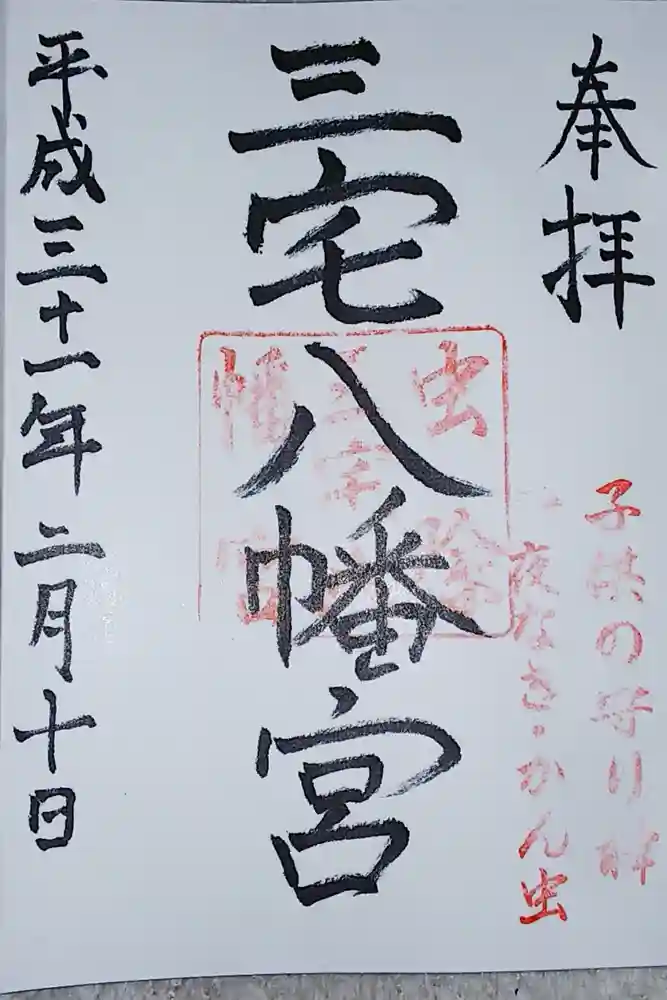 奉拝
子供の守り神
夜なき・かん虫
三宅八幡宮
虫
三宅
幡
平成三十一年二月十日